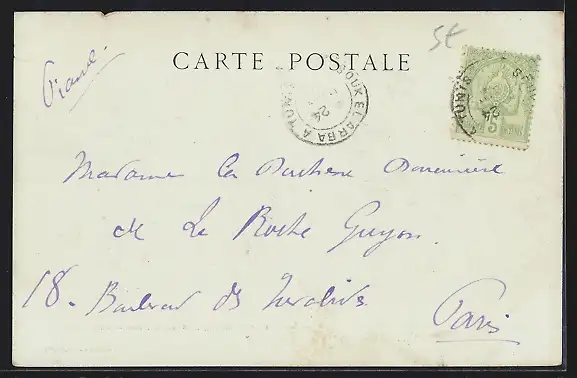 5€
CARTE POSTALE
France
SOUK EL ARBA A TUNIS
24
A TUNIS
24
5
Madame La Duchesse Douairière
de La Roche Guyon.
18 - Boulevard des Invalides
Paris